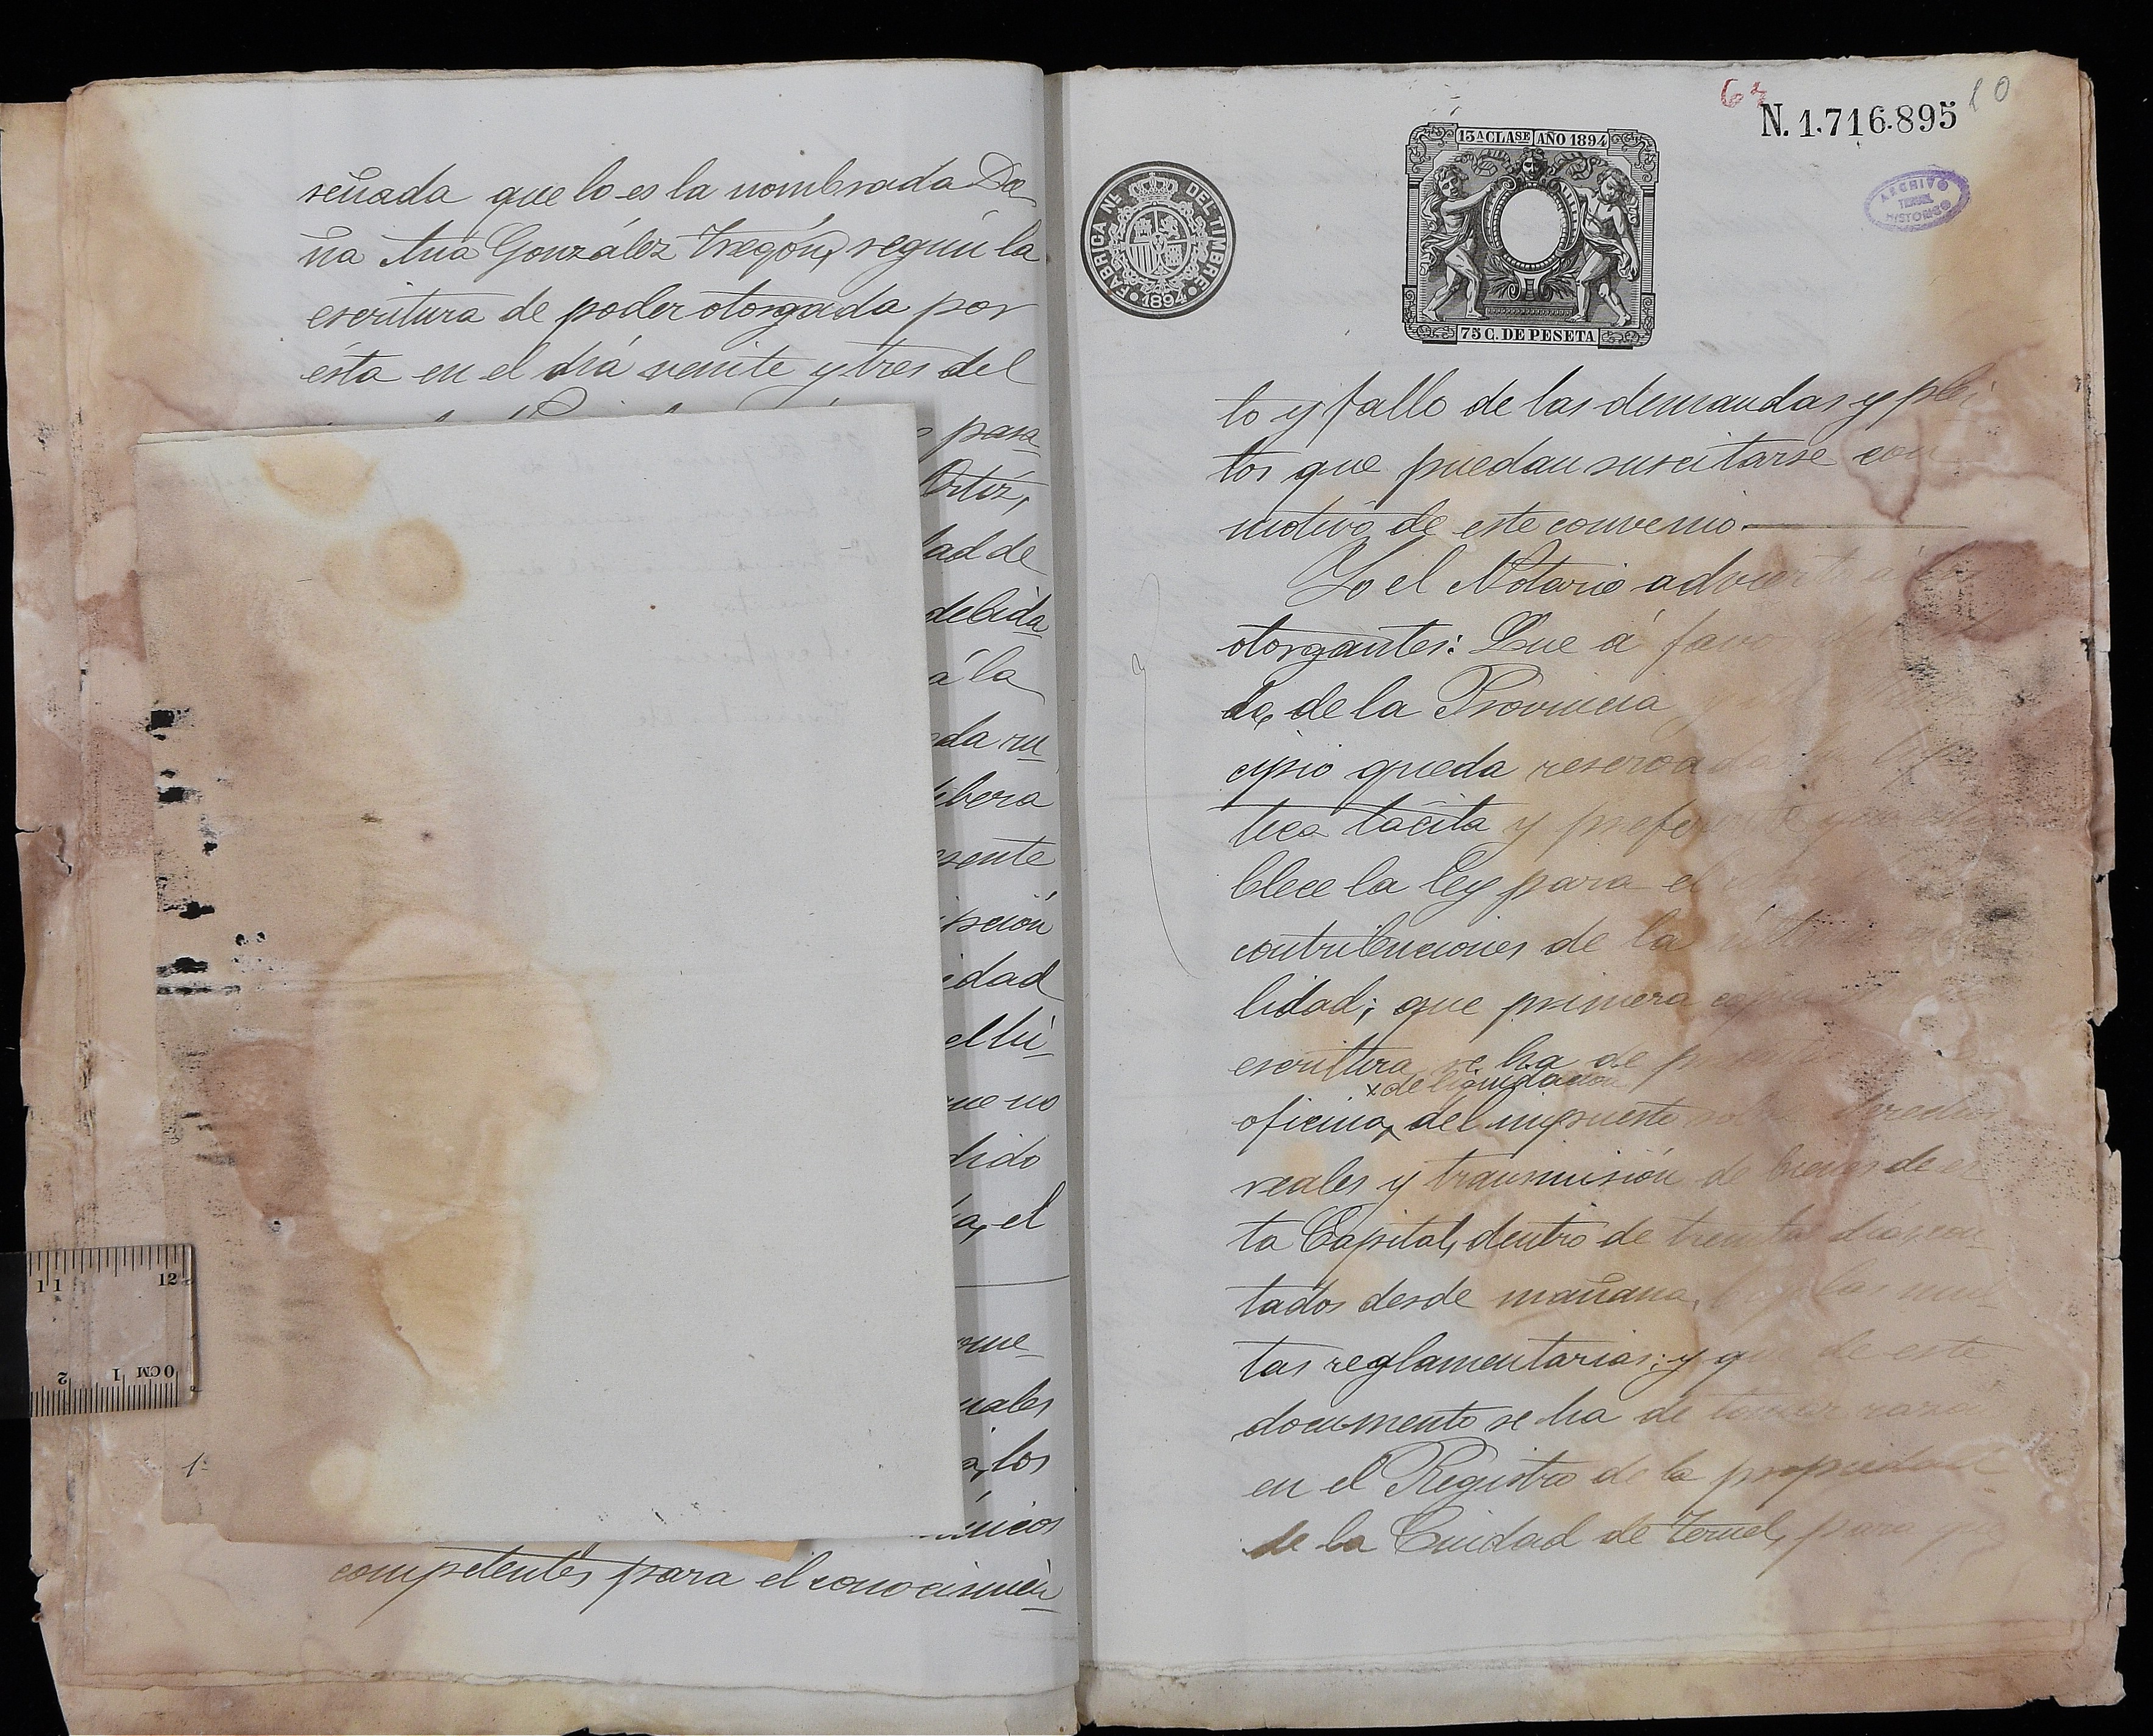 señada que lo es la nombrada Do-
ña Ana González Yregón, según la
escritura de poder otorgada por
ésta en el día veinte y tres del
para
Ortiz,
dad de
debida-
á la
ada ru-
ibera
esente
ipción
edad
el lu-
que no
dido
a, el
ome-
uales
á, los
únicos
competentes para el conocimien-
62
10
N. 1.716.895
13ª CLASE AÑO 1894
75 C. DE PESETA
FÁBRICA NL. DEL TIMBRE
1894
ARCHIVO
TERUEL
HISTORICO
to y fallo de las demandas y plei-
tos que puedan suscitarse con
motivo de este convenio
Yo el Notario advierto á los
otorgantes: Que á favor del Esta-
do, de la Provincia y del Muni-
cipio queda reservada la hipo-
teca tácita y preferente que esta-
blece la ley para el
contribuciones de la última
lidad; que primera copia de
escritura se ha de
× de liquidación
oficina, del impuesto sobre derechos
reales y transmisión de bienes de es-
ta Capital, dentro de treinta días, con-
tados desde mañana, bajo las mul-
tas reglamentarias; y que de este
documento se ha de tomar razón
en el Registro de la propiedad
de la Ciudad de Teruel, para que
11
12
2
1
0CM
1